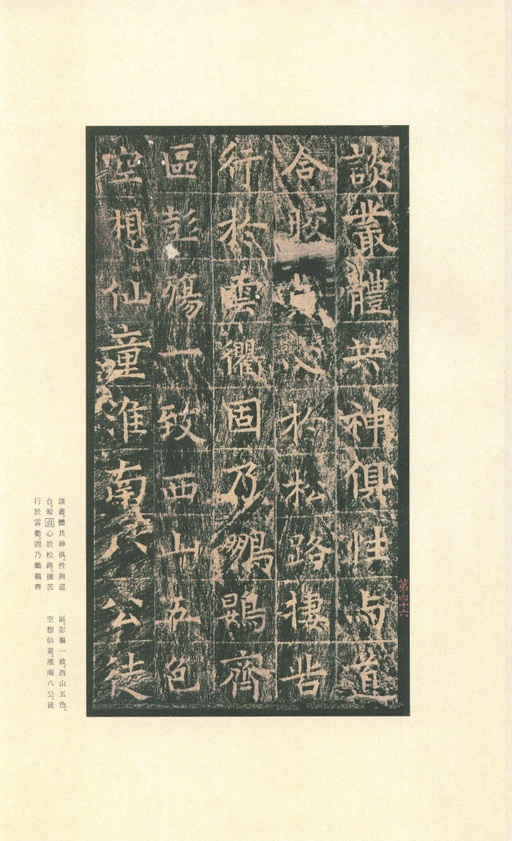 談叢體共神俱性与道
合晈心於松路棲苦
行於雲衢固乃鵬鷃齊
區彭殤一致西山五色
空想仙童淮南八公徒
談叢。體共神俱。性與道
合。晈貞心於松路。棲苦
行於雲衢。固乃鵬鷃齊
區。彭殤一致。西山五色。
空想仙童。淮南八公。徒